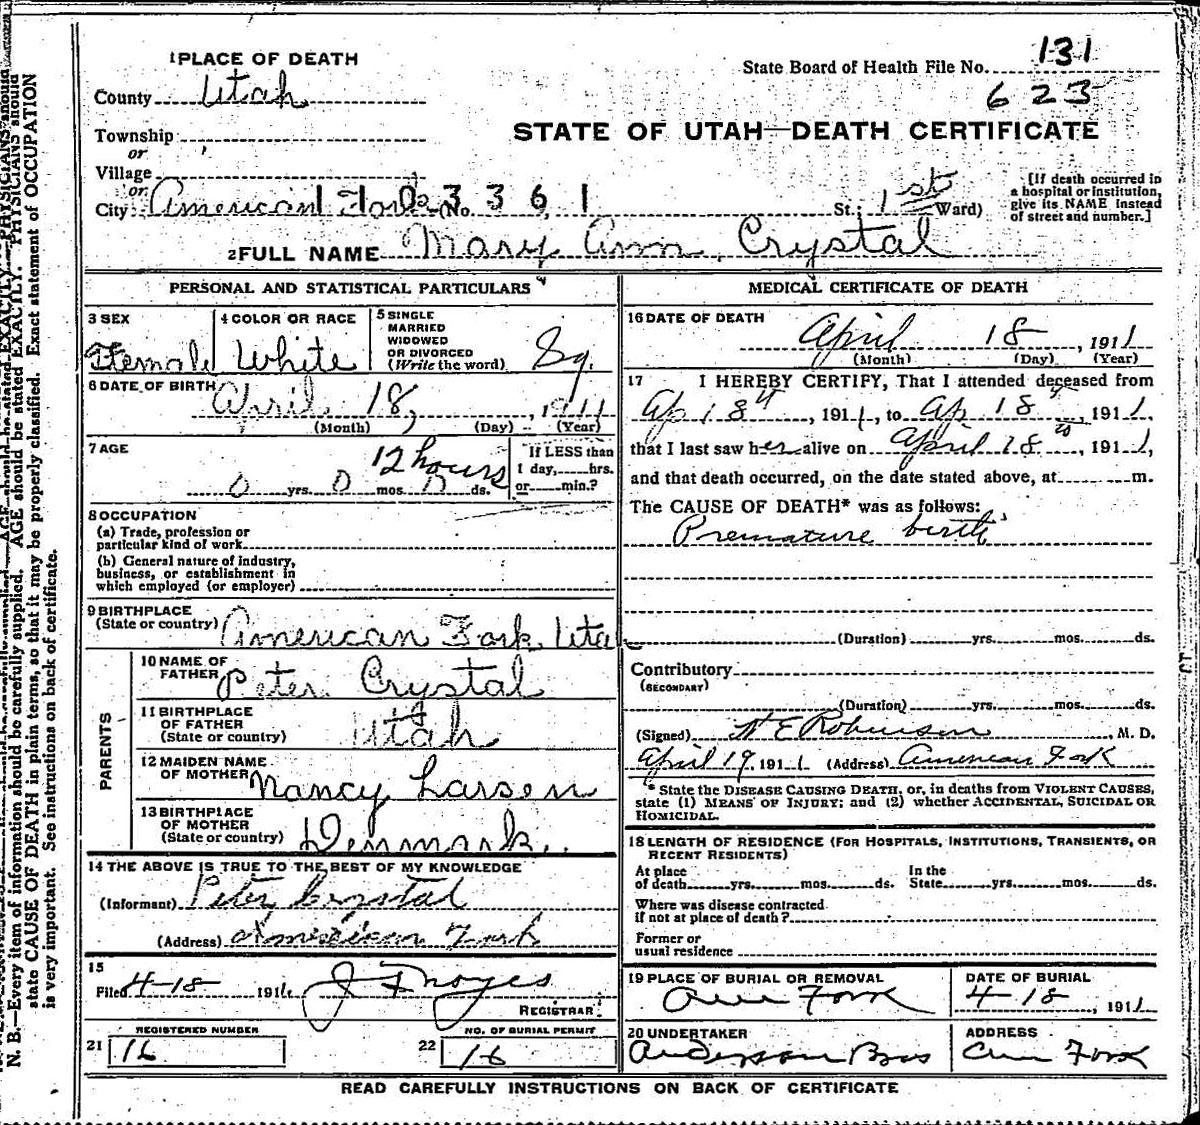 1 PLACE OF DEATH
County Utah
Township
or
Village
or
City American Fork No. 3 3 6 1 St.; 1st Ward)
State Board of Health File No. 131
623
STATE OF UTAH—DEATH CERTIFICATE
[If death occurred in
a hospital or institution,
give its NAME instead
of street and number.]
2 FULL NAME Mary Ann Crystal
PERSONAL AND STATISTICAL PARTICULARS
3 SEX
Female
4 COLOR OR RACE
White
5 SINGLE
MARRIED
WIDOWED
OR DIVORCED
(Write the word) Sg.
6 DATE OF BIRTH April 18, , 1911
(Month) (Day) (Year)
7 AGE 12 hours
0 yrs. 0 mos. 0 ds.
If LESS than
1 day, hrs.
or min.?
8 OCCUPATION
(a) Trade, profession or
particular kind of work
(b) General nature of industry,
business, or establishment in
which employed (or employer)
9 BIRTHPLACE
(State or country) American Fork Utah
PARENTS
10 NAME OF
FATHER Peter Crystal
11 BIRTHPLACE
OF FATHER
(State or country) Utah
12 MAIDEN NAME
OF MOTHER Nancy Larsen
13 BIRTHPLACE
OF MOTHER
(State or country) Denmark.
14 THE ABOVE IS TRUE TO THE BEST OF MY KNOWLEDGE
(Informant) Peter Crystal
(Address) American Fork
15
Filed 4-18 1911. J F Noyes
REGISTRAR
REGISTERED NUMBER
21 16
NO. OF BURIAL PERMIT
22 16
MEDICAL CERTIFICATE OF DEATH
16 DATE OF DEATH
April 18 , 1911
(Month) (Day) (Year)
17 I HEREBY CERTIFY, That I attended deceased from
Ap 18th, 1911, to Ap 18th, 1911,
that I last saw her alive on April 18th, 1911,
and that death occurred, on the date stated above, at m.
The CAUSE OF DEATH* was as follows:
Premature birth
(Duration) yrs. mos. ds.
Contributory
(SECONDARY)
(Duration) yrs. mos. ds.
(Signed) Robinson, M. D.
April 19, 1911 (Address) American Fork
* State the DISEASE CAUSING DEATH, or, in deaths from VIOLENT CAUSES,
state (1) MEANS OF INJURY; and (2) whether ACCIDENTAL, SUICIDAL OR
HOMICIDAL.
18 LENGTH OF RESIDENCE (FOR HOSPITALS, INSTITUTIONS, TRANSIENTS, OR
RECENT RESIDENTS)
At place
of death yrs. mos. ds.
In the
State yrs. mos. ds.
Where was disease contracted
if not at place of death?
Former or
usual residence
19 PLACE OF BURIAL OR REMOVAL
Am Fork
DATE OF BURIAL
4-18 , 1911
20 UNDERTAKER
Anderson Bros
ADDRESS
Am Fork
READ CAREFULLY INSTRUCTIONS ON BACK OF CERTIFICATE
N. B.—Every item of information should be carefully supplied. AGE should be stated EXACTLY. PHYSICIANS should
state CAUSE OF DEATH in plain terms, so that it may be properly classified. Exact statement of OCCUPATION
is very important. See instructions on back of certificate.